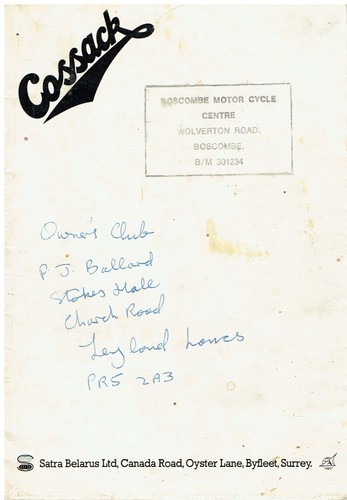 Cossack
BOSCOMBE MOTOR CYCLE
CENTRE
WOLVERTON ROAD,
BOSCOMBE,
B/M 301234
Owner's Club
P. J. Ballard
Stokes Hall
Church Road
Leyland Lancs
PR5 2A3
Satra Belarus Ltd, Canada Road, Oyster Lane, Byfleet, Surrey.